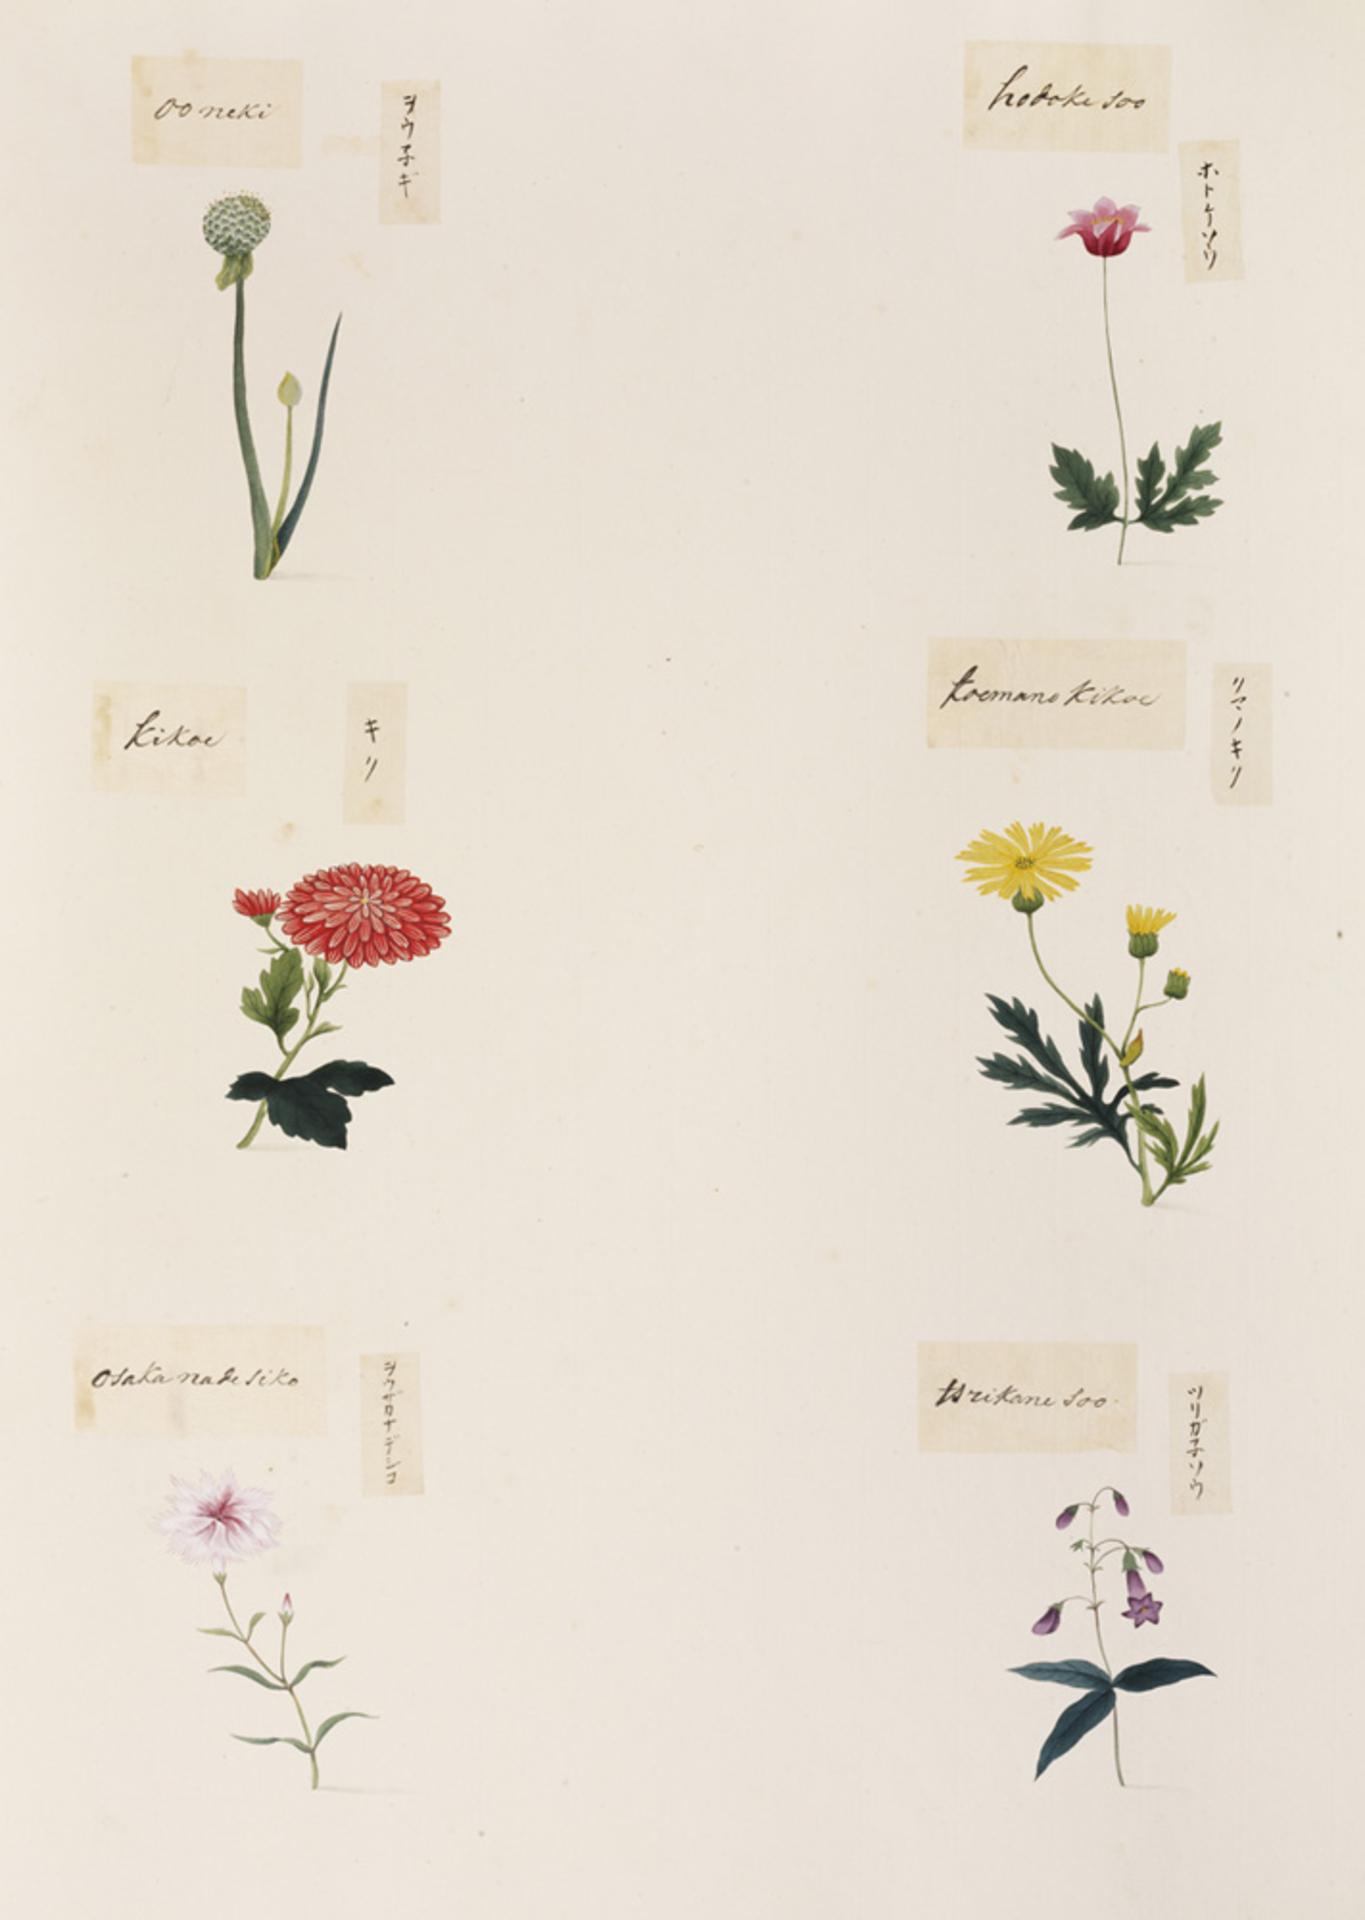 oo neki
ヲウネギ
hodoke soo
ホトケソウ
kikoe
キク
koemano kikoe
クマノキク
osaka nadesiko
ヲウサカナデシコ
tsrikane soo
ツリガネソウ